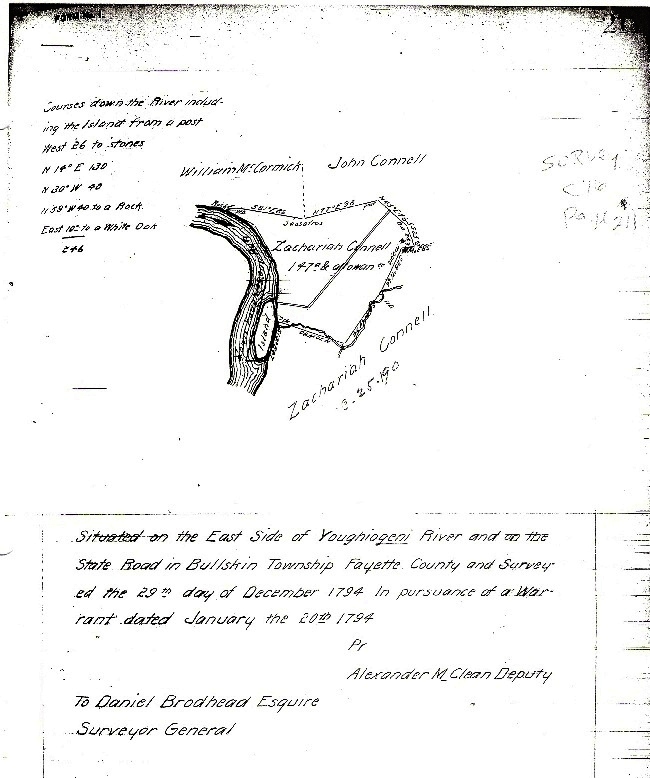 Courses down the River includ-
ing the Island from a post
West 26 to stones
N 14° E 130
N 30° W 40
N 59° W 40 to a Rock
East 10 to a White Oak
246
William McCormick
John Connell
Survey
C 76
Page 211
Sassafras
Zachariah Connell
147 a & allowance
Island
Zachariah Connell
3-25-190
Situated on the East Side of Youghiogeni River and on the
State Road in Bullskin Township Fayette County and Survey
ed the 29th day of December 1794 In pursuance of a War-
rant dated January the 20th 1794
Pr
Alexander McClean Deputy
To Daniel Brodhead Esquire
Surveyor General